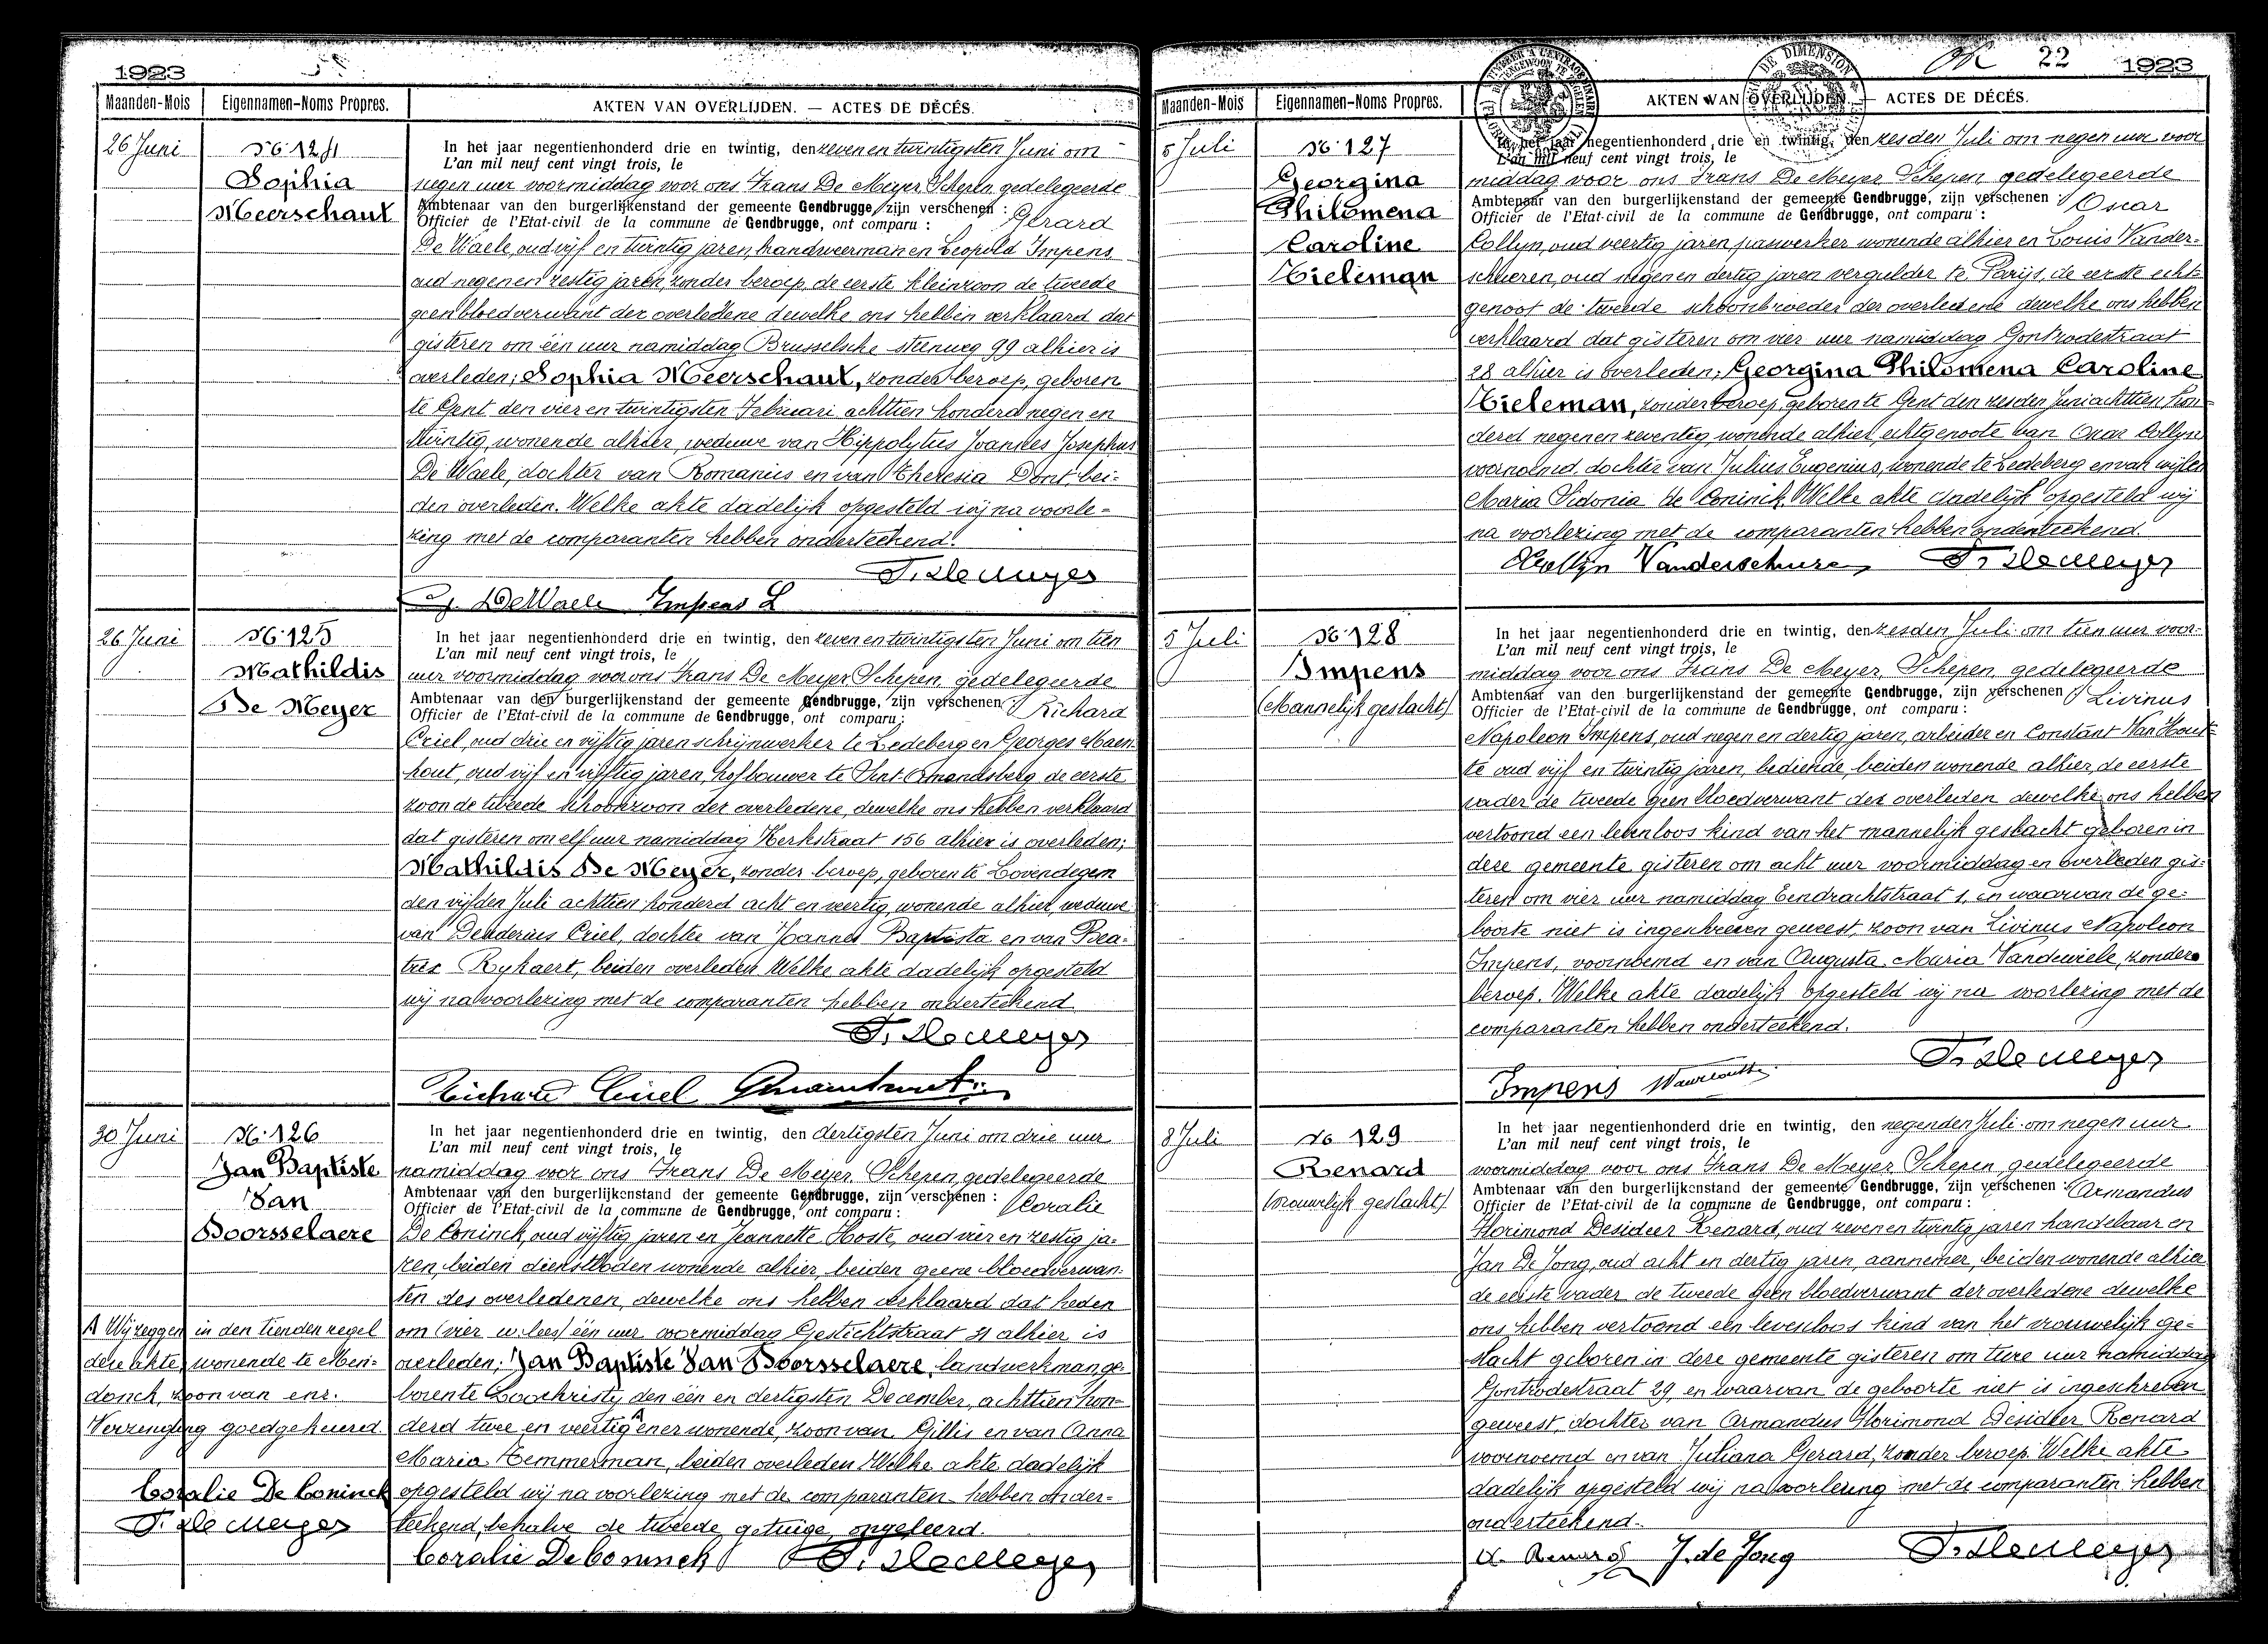 1923
Maanden-Mois Eigennamen-Noms Propres. AKTEN VAN OVERLIJDEN. — ACTES DE DÉCÉS.
26 Juni
No 124
Sophia
Meerschaut
In het jaar negentienhonderd drie en twintig, den zeven en twintigsten Juni om
L'an mil neuf cent vingt trois, le
negen uur voormiddag voor ons Frans De Meyer Schepen gedelegeerde
Ambtenaar van den burgerlijkenstand der gemeente Gendbrugge, zijn verschenen : Gerard
Officier de l'Etat-civil de la commune de Gendbrugge, ont comparu :
De Waele, oud vijf en twintig jaren, handweerman en Leopold Impens
oud negen en zestig jaren, zonder beroep, de eerste kleinzoon de tweede
geen bloedverwant der overledene dewelke ons hebben verklaard dat
gisteren om één uur namiddag Brusselsche steenweg 99 alhier is
overleden; Sophia Meerschaut, zonder beroep, geboren
te Gent den vier en twintigsten Februari achttien honderd negen en
twintig, wonende alhier, weduwe van Hippolytus Joannes Josephus
De Waele, dochter van Romanus en van Theresia Dont, bei-
den overleden. Welke akte dadelijk opgesteld wij na voorle-
zing met de comparanten hebben onderteekend.
F. De Meyer
G. De Waele Impens L
26 Juni
No 125
Mathildis
De Meyer
In het jaar negentienhonderd drie en twintig, den zeven en twintigsten Juni om tien
L'an mil neuf cent vingt trois, le
uur voormiddag voor ons Frans De Meyer Schepen gedelegeerde
Ambtenaar van den burgerlijkenstand der gemeente Gendbrugge, zijn verschenen : Richard
Officier de l'Etat-civil de la commune de Gendbrugge, ont comparu :
Criel, oud drie en vijftig jaren schrijnwerker te Ledeberg en Georges Maen-
hout, oud vijf en vijftig jaren, hofbouwer te Sint Amandsberg de eerste
zoon de tweede schoonzoon der overledene, dewelke ons hebben verklaard
dat gisteren om elf uur namiddag Kerkstraat 156 alhier is overleden;
Mathildis De Meyer, zonder beroep, geboren te Lovendegem
den vijfden Juli achttien honderd acht en veertig, wonende alhier, weduwe
van Desiderius Criel, dochter van Joannes Baptista en van Bea-
trix Rykaert, beiden overleden Welke akte dadelijk opgesteld
wij na voorlezing met de comparanten hebben onderteekend
F. De Meyer
Richard Criel G. Maenhout
30 Juni
No 126
Jan Baptiste
Van
Doorsselaere
In het jaar negentienhonderd drie en twintig, den dertigsten Juni om drie uur
L'an mil neuf cent vingt trois, le
namiddag voor ons Frans De Meyer, Schepen, gedelegeerde
Ambtenaar van den burgerlijkenstand der gemeente Gendbrugge, zijn verschenen : Coralie
Officier de l'Etat-civil de la commune de Gendbrugge, ont comparu :
De Coninck, oud vijftig jaren en Jeannette Hoste, oud vier en zestig ja-
ren, beiden dienstboden wonende alhier, beiden geene bloedverwan-
ten des overledenen, dewelke ons hebben verklaard dat heden
om (vier w. lees) één uur voormiddag Gestichtstraat 4 alhier is
overleden; Jan Baptiste Van Doorsselaere, landwerkman ge-
boren te Loochristy den één en dertigsten December, achttien hon-
derd twee en veertig A en er wonende, zoon van Gillis en van Anna
Maria Temmerman, beiden overleden Welke akte dadelijk
opgesteld wij na voorlezing met de comparanten hebben onder-
teekend, behalve de tweede getuige, ongeleerd.
Coralie De Coninck F. De Meyer
A Wij zeggen in den tienden regel
deze akte, wonende te Men-
donck, zoon van enz.
Verzending goedgekeurd.
Coralie De Coninck
F. De Meyer
OK 22 1923
Maanden-Mois Eigennamen-Noms Propres. AKTEN VAN OVERLIJDEN. — ACTES DE DÉCÉS.
5 Juli
No 127
Georgina
Philomena
Caroline
Tieleman
In het jaar negentienhonderd drie en twintig, den zesden Juli om negen uur voor
L'an mil neuf cent vingt trois, le
middag voor ons Frans De Meyer Schepen gedelegeerde
Ambtenaar van den burgerlijkenstand der gemeente Gendbrugge, zijn verschenen : Oscar
Officier de l'Etat-civil de la commune de Gendbrugge, ont comparu :
Collyn, oud veertig jaren, paswerker wonende alhier en Louis Vander-
schueren, oud negen en dertig jaren vergulder te Parijs, de eerste echt-
genoot de tweede schoonbroeder der overledene dewelke ons hebben
verklaard dat gisteren om vier uur namiddag Gontrodestraat
28 alhier is overleden; Georgina Philomena Caroline
Tieleman, zonder beroep, geboren te Gent den zesden Juni achttien hon-
derd negen en zeventig wonende alhier, echtgenoote van Oscar Collyn
voornoemd, dochter van Julius Eugenius, wonende te Ledeberg en van wijlen
Maria Sidonia De Coninck. Welke akte dadelijk opgesteld wij
na voorlezing met de comparanten hebben onderteekend.
O Collyn Vanderschueren F. De Meyer
5 Juli
No 128
Impens
(Mannelijk geslacht)
In het jaar negentienhonderd drie en twintig, den zesden Juli om tien uur voor-
L'an mil neuf cent vingt trois, le
middag voor ons Frans De Meyer, Schepen, gedelegeerde
Ambtenaar van den burgerlijkenstand der gemeente Gendbrugge, zijn verschenen : Livinus
Officier de l'Etat-civil de la commune de Gendbrugge, ont comparu :
Napoleon Impens, oud negen en dertig jaren, arbeider en Constant Van Hout-
te oud vijf en twintig jaren, bediende, beiden wonende alhier, de eerste
vader de tweede geen bloedverwant des overleden dewelke ons hebben
vertoond een levenloos kind van het mannelijk geslacht geboren in
deze gemeente gisteren om acht uur voormiddag en overleden gis-
teren om vier uur namiddag Eendrachtstraat 1, en waarvan de ge-
boorte niet is ingeschreven geweest, zoon van Livinus Napoleon
Impens, voornoemd en van Augusta Maria Vandewiele, zonder
beroep. Welke akte dadelijk opgesteld wij na voorlezing met de
comparanten hebben onderteekend.
F. De Meyer
Impens
8 Juli
No 129
Renard
(vrouwelijk geslacht)
In het jaar negentienhonderd drie en twintig, den negenden Juli om negen uur
L'an mil neuf cent vingt trois, le
voormiddag voor ons Frans De Meyer Schepen gedelegeerde
Ambtenaar van den burgerlijkenstand der gemeente Gendbrugge, zijn verschenen : Armandus
Officier de l'Etat-civil de la commune de Gendbrugge, ont comparu :
Florimond Desideer Renard, oud zeven en twintig jaren handelaar en
Jan De Jong, oud acht en dertig jaren, aannemer, beiden wonende alhier
de eerste vader de tweede geen bloedverwant der overledene dewelke
ons hebben vertoond een levenloos kind van het vrouwelijk ge-
slacht geboren in deze gemeente gisteren om twee uur namiddag
Gontrodestraat 29 en waarvan de geboorte niet is ingeschreven
geweest, dochter van Armandus Florimond Desideer Renard
voornoemd en van Juliana Gerard, zonder beroep. Welke akte
dadelijk opgesteld wij na voorlezing met de comparanten hebben
onderteekend.
A. Renard J. de Jong F. De Meyer